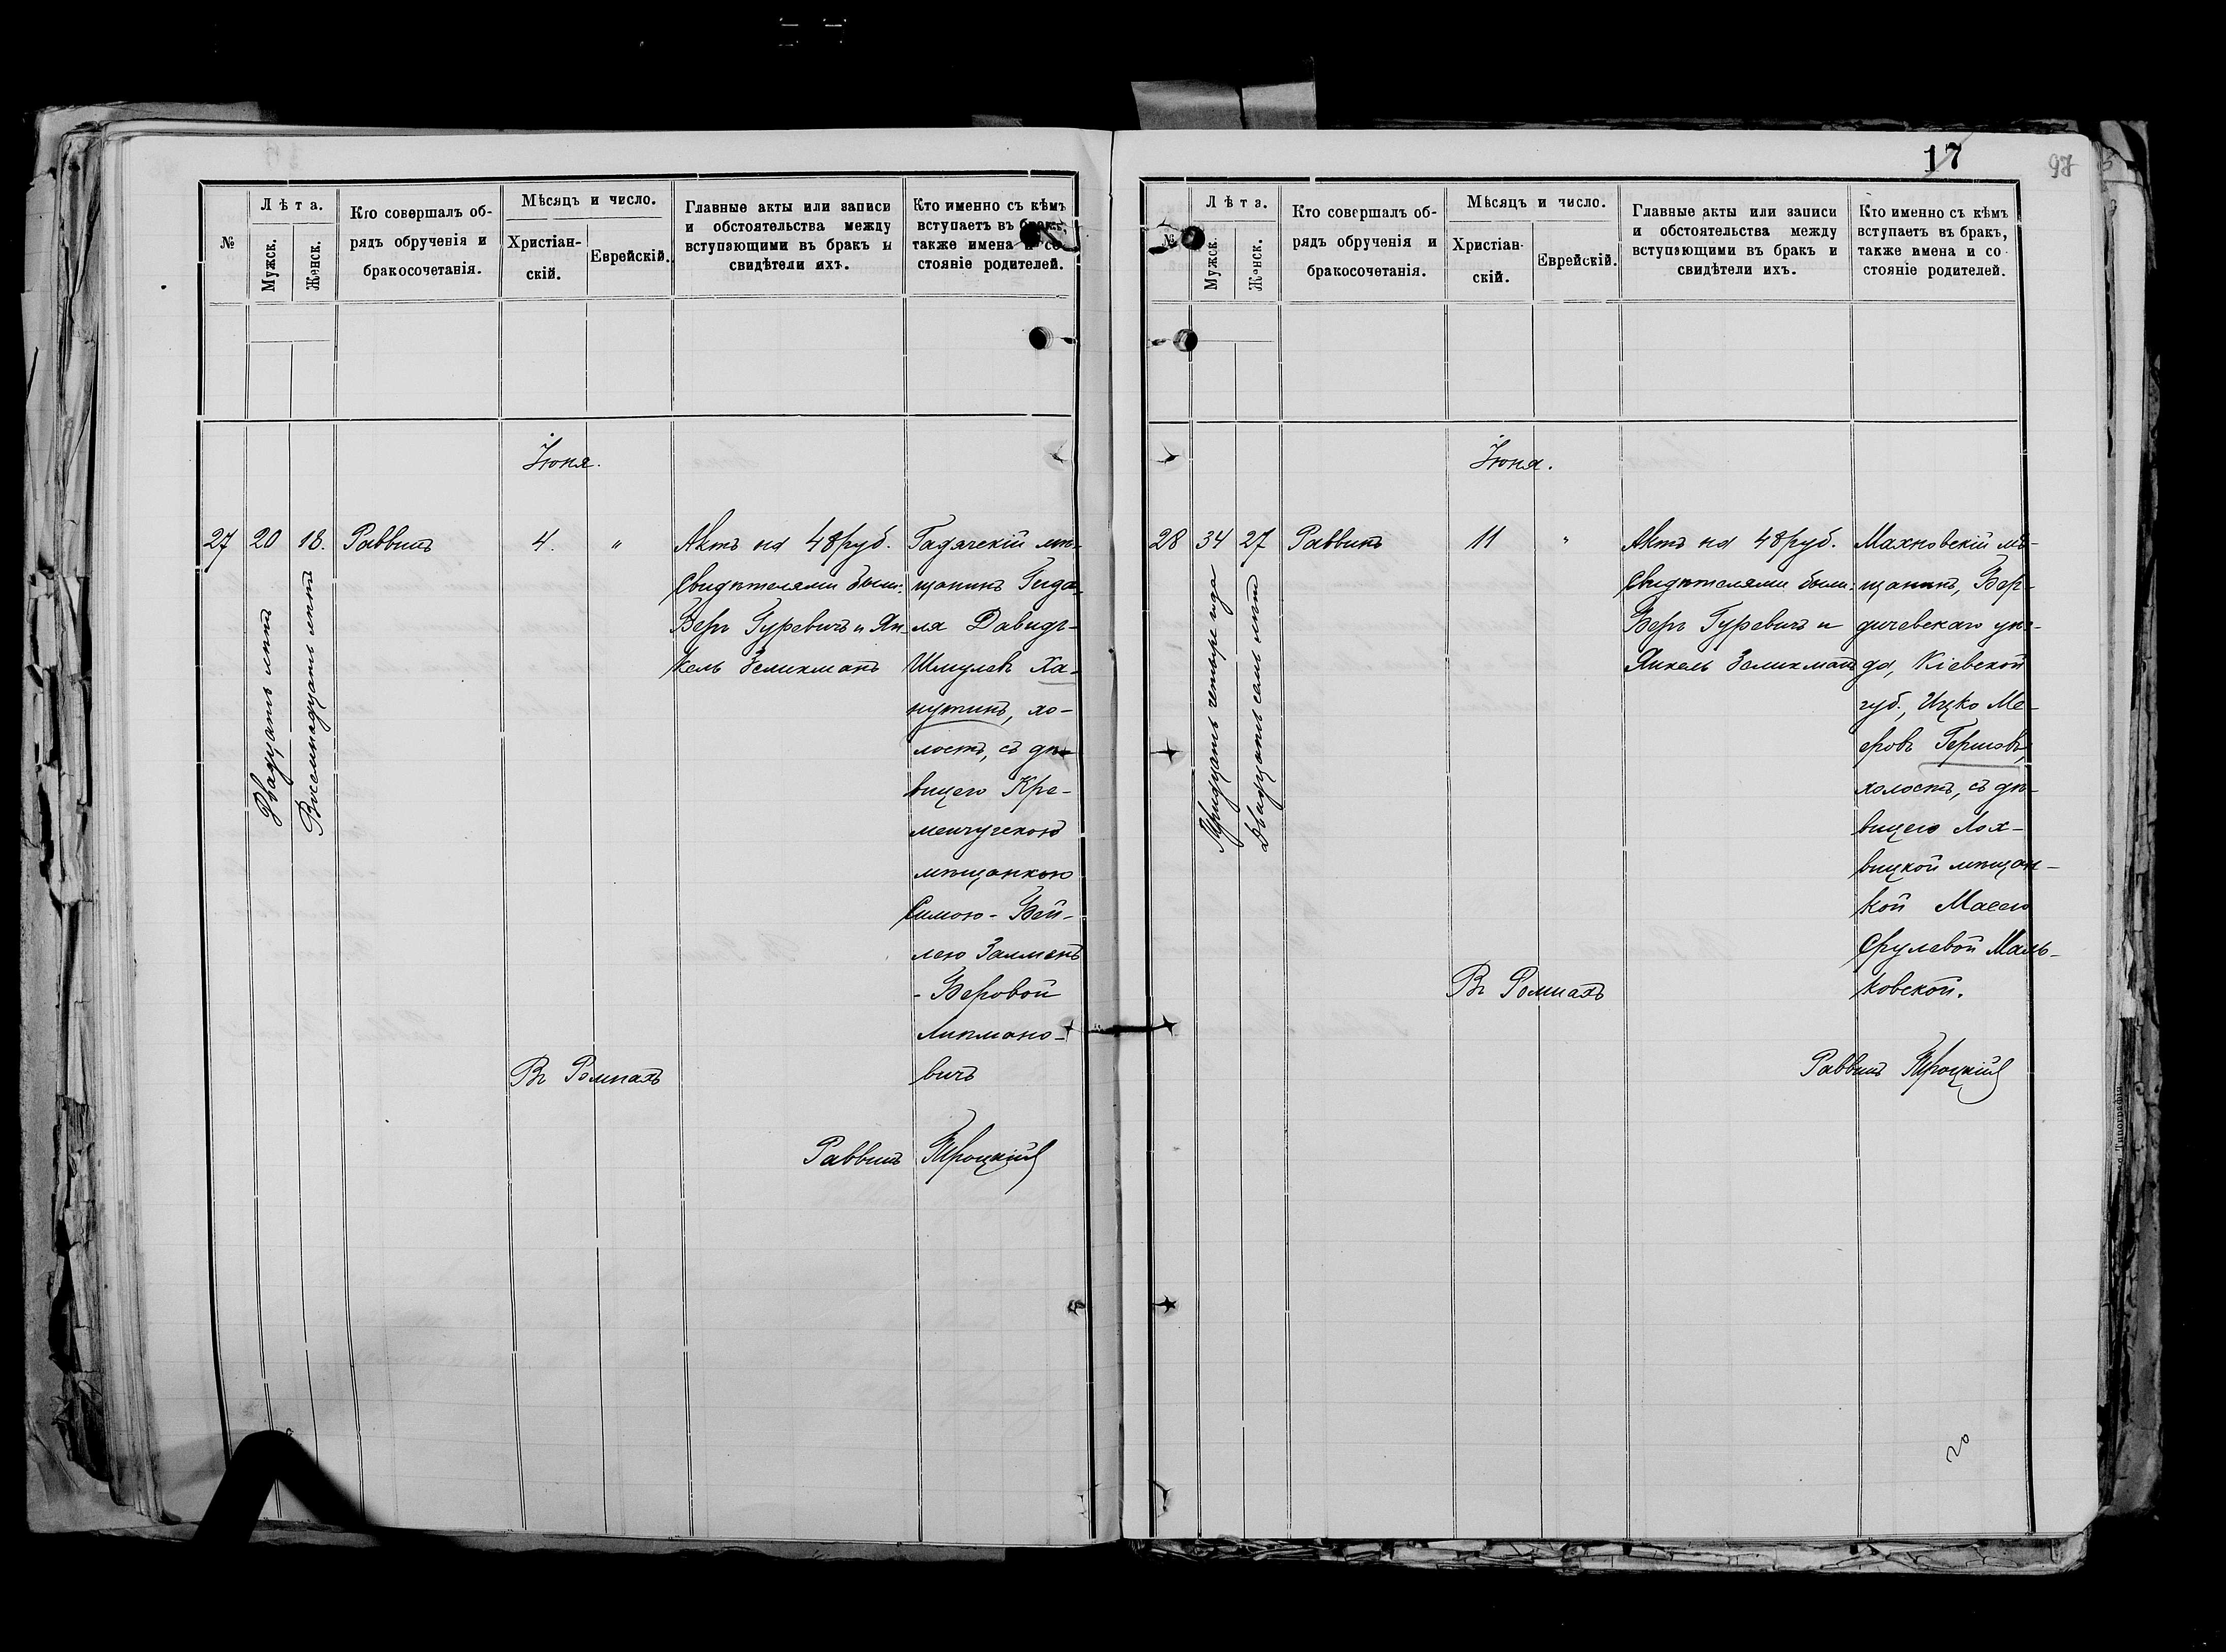 №
Лѣта.
Мужск.
Женск.
Кто совершалъ об-
рядъ обрученія и
бракосочетанія.
Мѣсяцъ и число.
Христіан-
скій.
Еврейскій.
Главные акты или записи
и обстоятельства между
вступающими въ бракъ и
свидѣтели ихъ.
Кто именно съ кѣмъ
вступаетъ въ бракъ,
также имена и со-
стояніе родителей.
Іюня.
27
20
Двадцать лѣтъ
18.
Восемнадцать лѣтъ
Раввинъ
4.
"
Актъ на 48 руб.
Свидѣтелями были:
Беръ Гуревичъ и Ян-
кель Зеликманъ
Гадячскій мѣ-
щанинъ Гида-
ля Давидъ-
Шмулевъ Ха-
нутинъ, хо-
лостъ, съ дѣ-
вицею Кре-
менчугскою
мѣщанкою
Симою-Бей-
лею Залманъ
-Беровой
Липмано-
вичъ
Въ Ромнахъ
Раввинъ Троцкій
17
97
№
Лѣта.
Мужск.
Женск.
Кто совершалъ об-
рядъ обрученія и
бракосочетанія.
Мѣсяцъ и число.
Христіан-
скій.
Еврейскій.
Главные акты или записи
и обстоятельства между
вступающими въ бракъ и
свидѣтели ихъ.
Кто именно съ кѣмъ
вступаетъ въ бракъ,
также имена и со-
стояніе родителей.
Іюня.
28
34
Тридцать четыре года
27
Двадцать семь лѣтъ
Раввинъ
11
"
Актъ на 48 руб.
Свидѣтелями были:
Беръ Гуревичъ и
Янкель Зеликманъ
Махновскій мѣ-
щанинъ, Бер-
дичевскаго уѣз-
да, Кіевской
губ., Ицко Ме-
еровъ Гершовъ,
холостъ, съ дѣ-
вицею Лох-
вицкой мѣщан-
кой Масею
Срулевой Маль-
ковской.
Въ Ромнахъ
Раввинъ Троцкій
20
Типографія